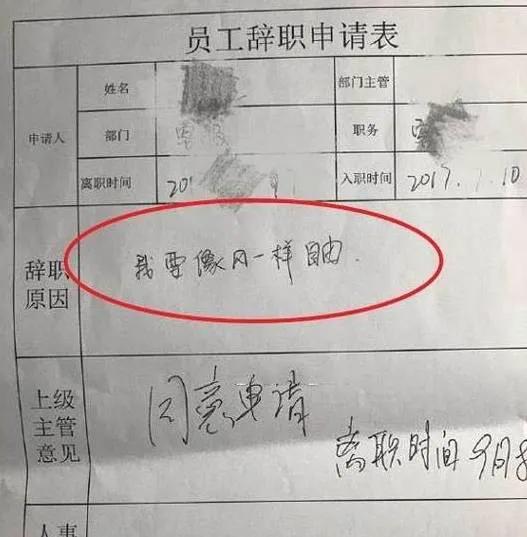 员工辞职申请表
姓名
部门主管
申请人
部门
客服
职务
离职时间
201
入职时间
2017.7.10
辞职
原因
我要像风一样自由.
上级
主管
意见
同意申请
离职时间9月8
人事